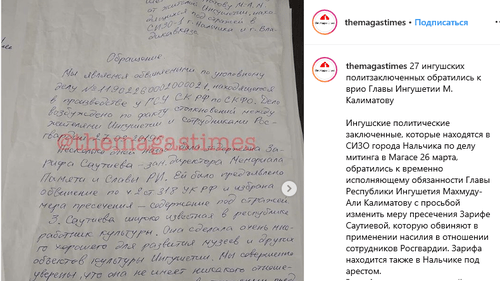 Ингушетии, нахо-
СИЗО-1 г. Нальчика и г. Вла-
дикавказ
Обращение
Мы являемся обвиняемыми по уголовному
делу
в производстве у ГСУ СК РФ по СКФО. Дело
возбуждено по факту столкновений между
жителями Ингушетии и сотрудниками Рос-
гвардии
@themagastimes
рифа Саутиева - зам. директора Мемориала
Памяти и Славы РИ. Ей было предъявлено
обвинение по ч. 2 ст 318 УК РФ и избрана
мера пресечения - содержание под стражей
З. Саутиева широко известная в республике
работник культуры. Она сделала очень мно-
го хорошего для развития музеев и других
объектов культуры Ингушетии. Мы совершенно
уверены, что она не имеет никакого отноше-
themagastimes • Подписаться
themagastimes 27 ингушских
политзаключенных обратились к
врио Главы Ингушетии М.
Калиматову
Ингушские политические
заключенные, которые находятся в
СИЗО города Нальчика по делу
митинга в Магасе 26 марта,
обратились к временно
исполняющему обязанности Главы
Республики Ингушетия Махмуду-
Али Калиматову с просьбой
изменить меру пресечения Зарифе
Саутиевой, которую обвиняют в
применении насилия в отношении
сотрудников Росгвардии. Зарифа
находится также в Нальчике под
арестом.